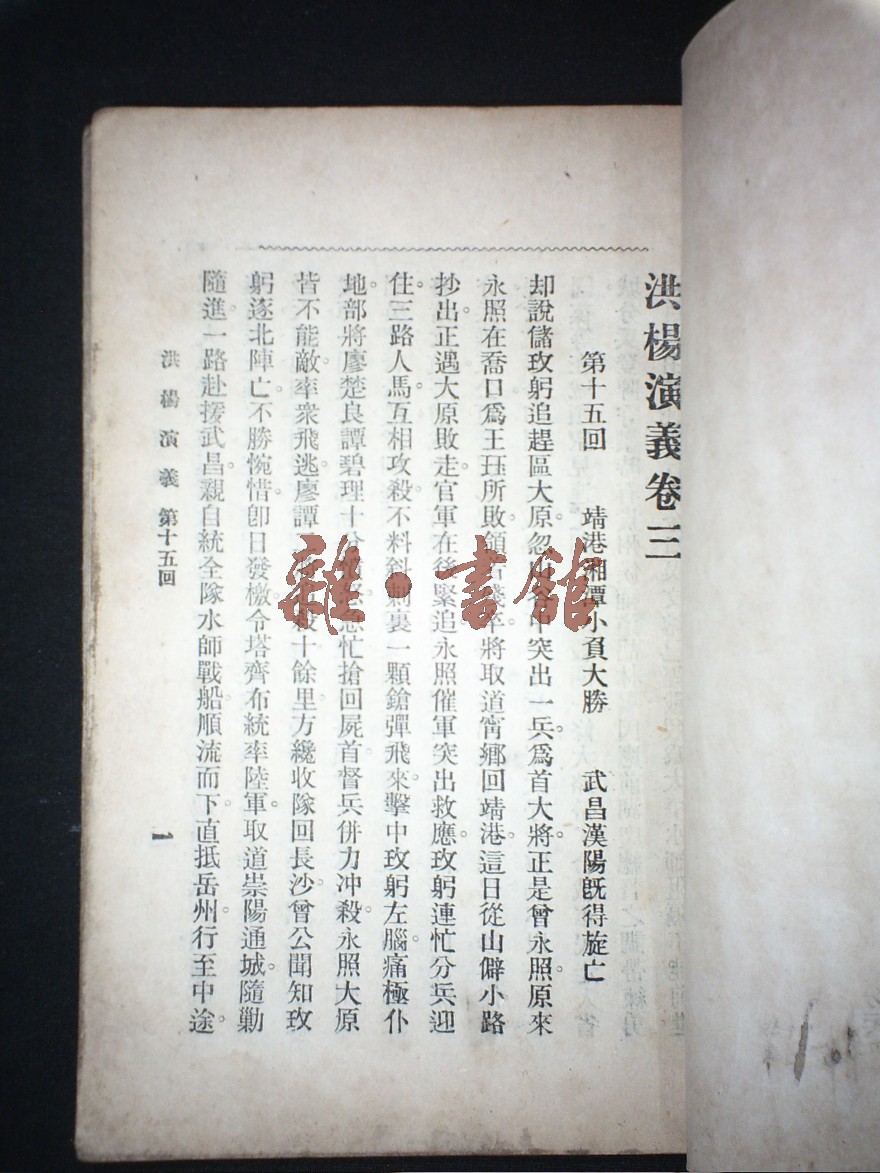 洪楊演義卷三
第十五回　靖港湘潭小負大勝　武昌漢陽旣得旋亡
却說儲玫躬追趕區大原。忽山谷中突出一兵。爲首大將正是曾永照。原來
永照在喬口爲王珏所敗。領 將取道甯鄉回靖港。這日從山僻小路
抄出。正遇大原敗走。官軍在後緊追。永照催軍突出救應。玫躬連忙分兵迎
住。三路人馬。互相攻殺。不料斜刺裏一顆鎗彈飛來。擊中玫躬左腦。痛極仆
地。部將廖楚良譚碧理十分 忙搶回屍首。督兵併力冲殺。永照大原
皆不能敵。率衆飛逃。廖譚 殺十餘里。方纔收隊回長沙。曾公聞知玫
躬逐北陣亡。不勝惋惜。卽日發檄。令塔齊布統率陸軍。取道崇陽通城。隨勦
隨進。一路赴援武昌。親自統全隊水師戰船。順流而下。直抵岳州。行至中途。
洪楊演義　第十五回
1
雜·書館